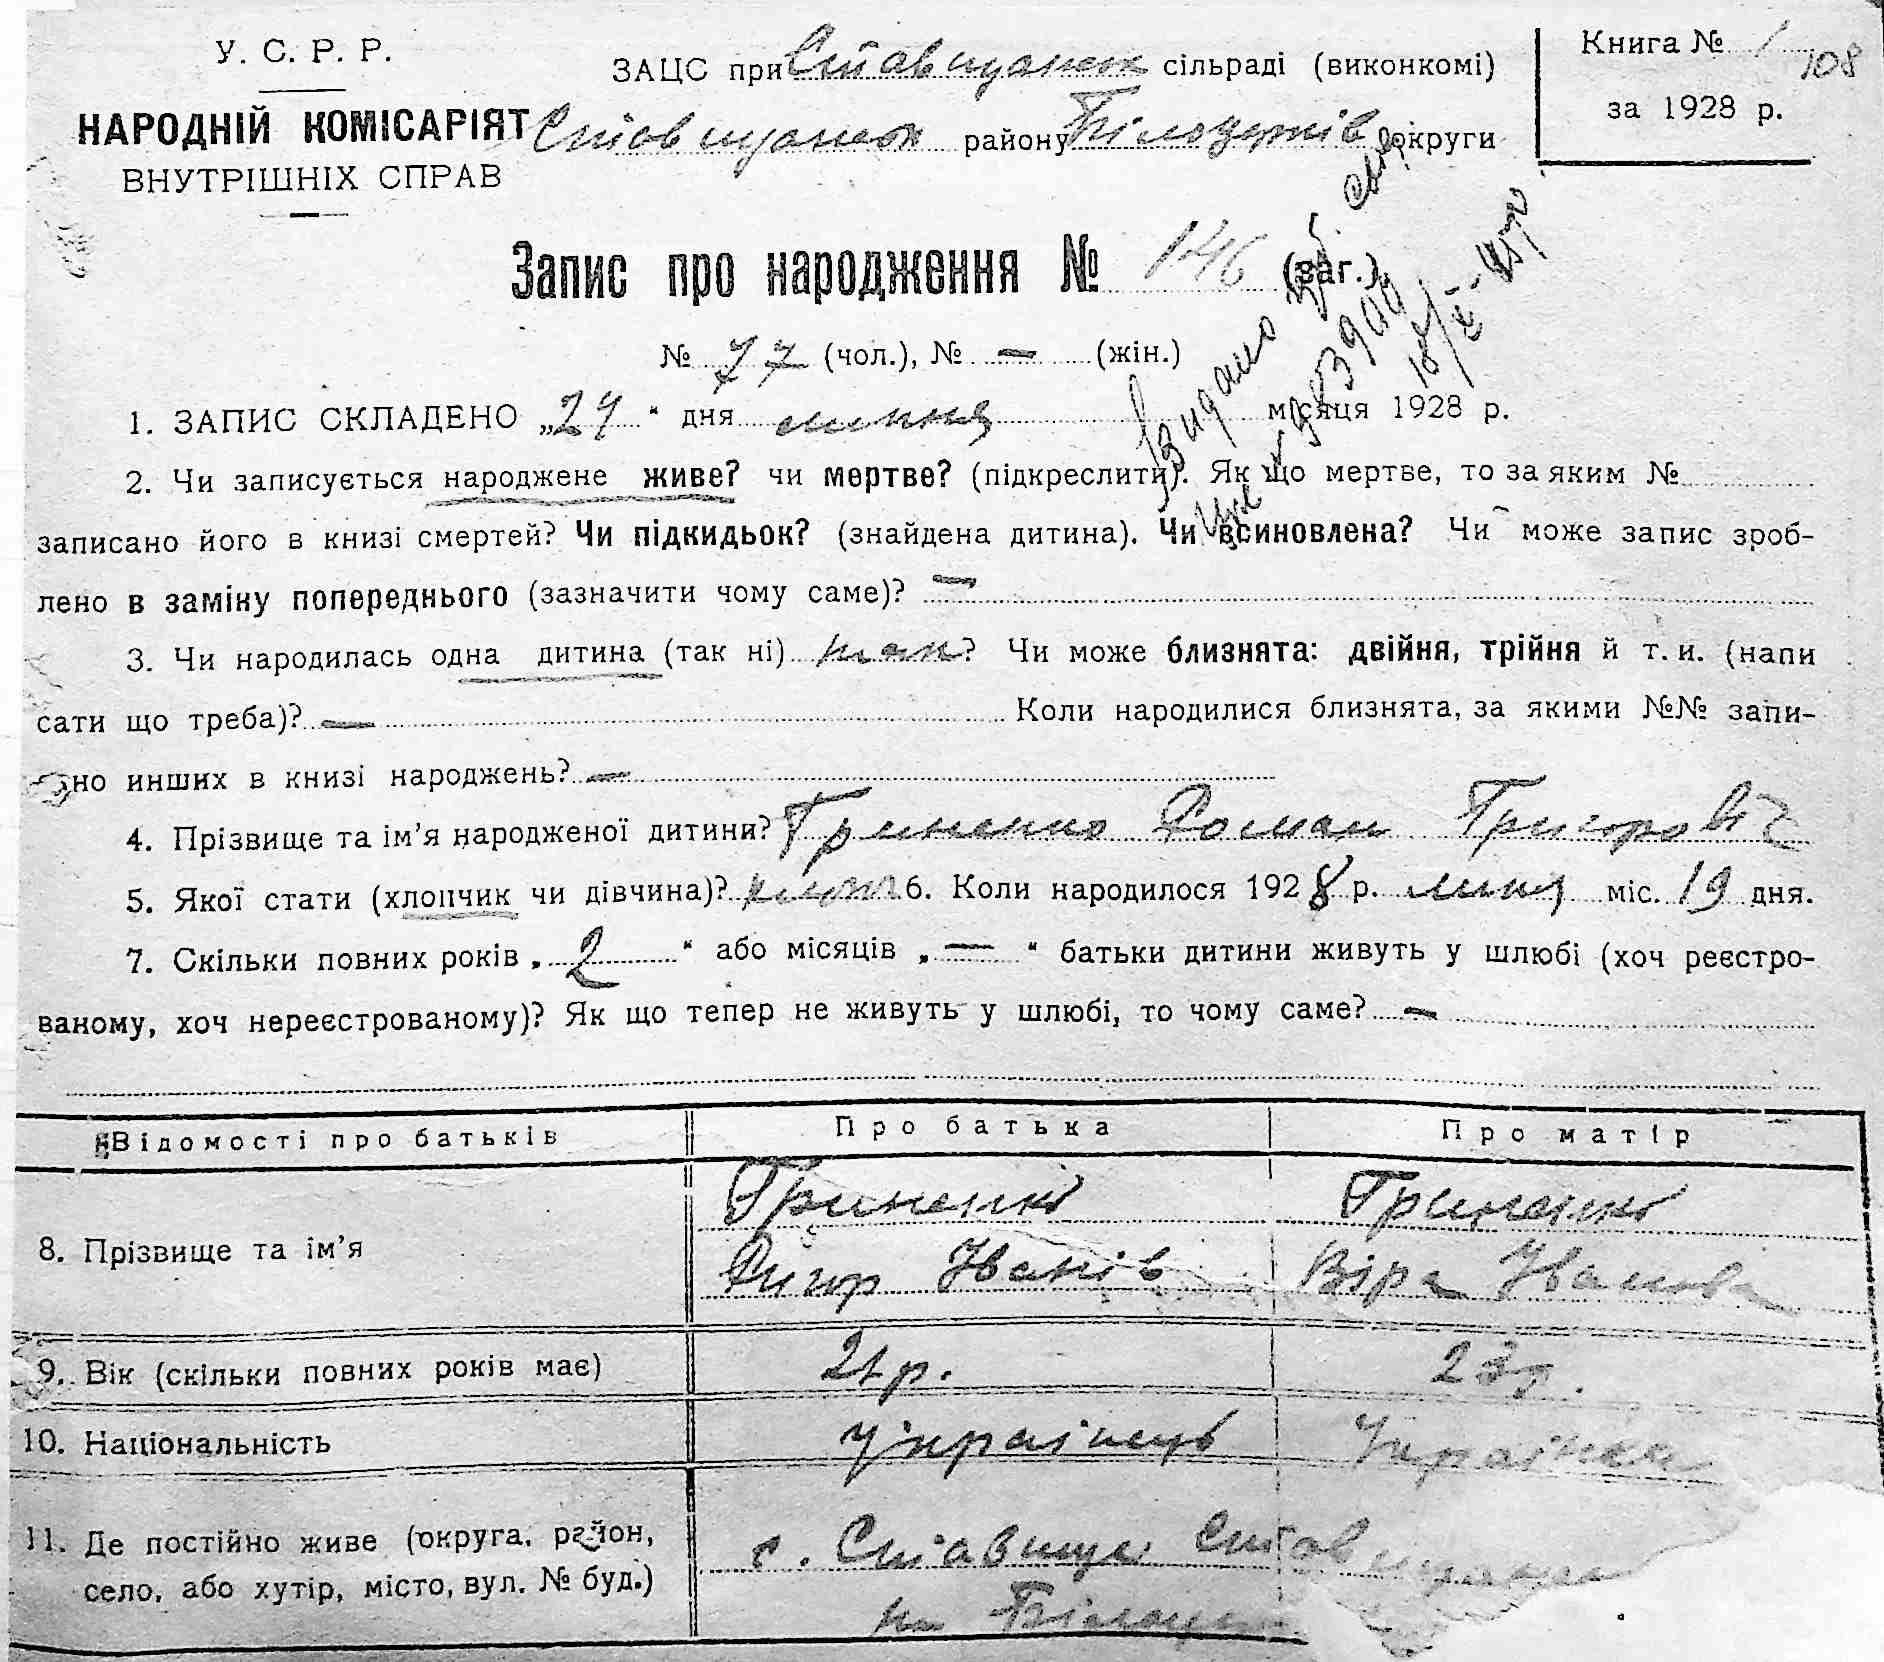 У. С. Р. Р.
НАРОДНІЙ КОМІСАРІЯТ
ВНУТРІШНІХ СПРАВ
ЗАЦС при Ставищанськ сільраді (виконкомі)
Ставищанськ району Білоцерків округи
Книга № 1
108
за 1928 р.
Запис про народження № 146 (заг.)
№ 77 (чол.), № — (жін.)
Видано
1. ЗАПИС СКЛАДЕНО „24“ дня липня місяця 1928 р.
2. Чи записується народжене живе? чи мертве? (підкреслити). Як що мертве, то за яким №
записано його в книзі смертей? Чи підкидьок? (знайдена дитина). Чи всиновлена? Чи може запис зроб-
лено в заміну попереднього (зазначити чому саме)? —
3. Чи народилась одна дитина (так ні) так? Чи може близнята: двійня, трійня й т. и. (напи
сати що треба)? — Коли народилися близнята, за якими №№ запи-
но инших в книзі народжень? —
4. Прізвище та ім’я народженої дитини? Гриненко Роман Григорович
5. Якої стати (хлопчик чи дівчина)? хлопч 6. Коли народилося 1928 р. липня міс. 19 дня.
7. Скільки повних років „2“ або місяців „—“ батьки дитини живуть у шлюбі (хоч реєстро-
ваному, хоч нереєстрованому)? Як що тепер не живуть у шлюбі, то чому саме? —
Відомості про батьків Про батька Про матір
8. Прізвище та ім’я Гриненко Гриненко
Григор Іванів Віра Іванова
9. Вік (скільки повних років має) 21 р. 23 р.
10. Національність українець Українка
11. Де постійно живе (округа, район, с. Ставище Ставищанськ
село, або хутір, місто, вул. № буд.) на Білоцер